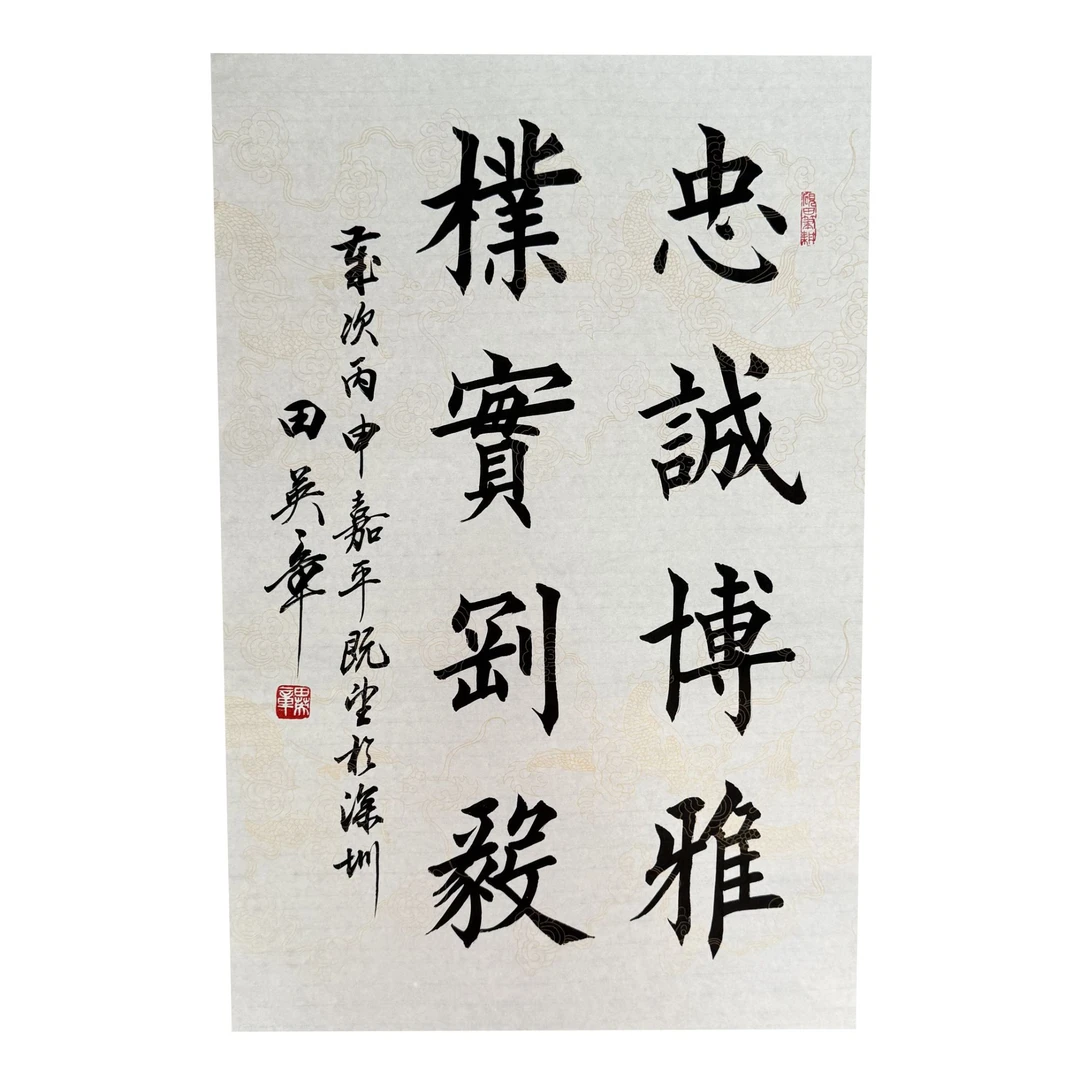 忠誠博雅
樸實剛毅
歲次丙申嘉平既望於深圳
田英章